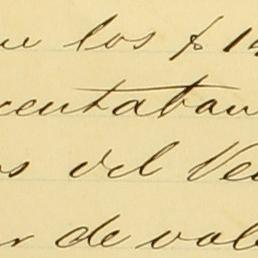 ue los $ 14
centaban
os del Ve
r de val